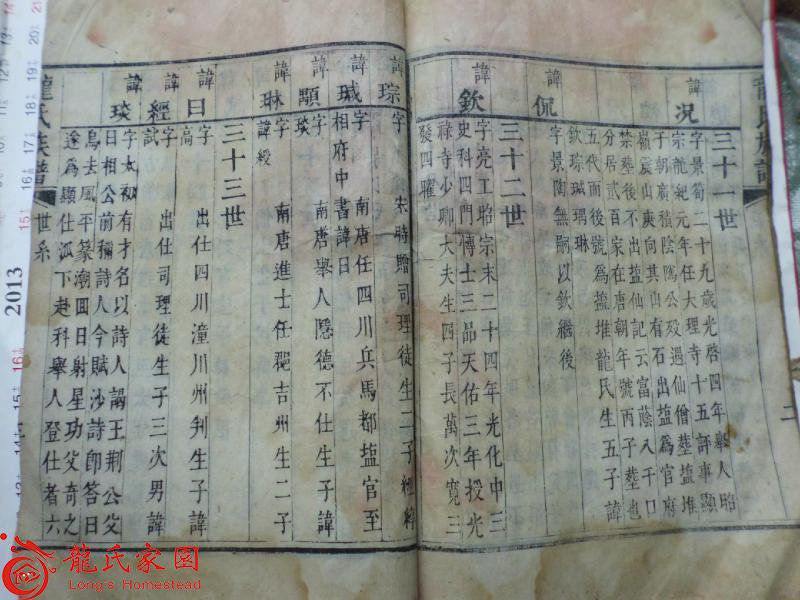 三十一世
諱況
字景荀二十九歲光啓四年舉人昭
宗龍紀元年任大理寺十五評事顯
子朝廣積陰隲公歿遇仙僧塟塩堆
嶺震山庚向其山有石出塩爲官府
禁塟後不出塩仙記云富蔭入千口
分居貳百家在唐朝年號丙子塟也
五代而後號爲塩堆龍氏生五子諱
欽琮瑊琄琳
諱侃
字景陶無嗣以欽繼後
三十二世
諱欽
字亮工昭宗末二十四年光化中三
史科四門傳士三品天佑三年授光
祿寺少卿大夫生四子長萬次寬三
發四曜
諱琮
字 宋時贈司理徒生二子經緯
諱瑊
字 南唐任四川兵馬都塩官至
相府中書諱日
諱顯
字 南唐舉人隱德不仕生子諱
琰
諱琳
字 南唐進士任硘吉州生二子
諱綬
三十三世
諱日
字 出仕四川潼川州判生子諱
高
諱經
字 出仕司理徒生子三次男諱
試
諱琰
字太初有才名以詩人謁王荆公父
日相公前稱詩人今賦沙詩卽答日
鳥去風平篆潮囬日射星功父奇之
遂爲顯仕泒下赴科舉人登仕者六
龍氏族譜 世系
龍氏族譜
二
2013
龍氏家園
Long's Homestead